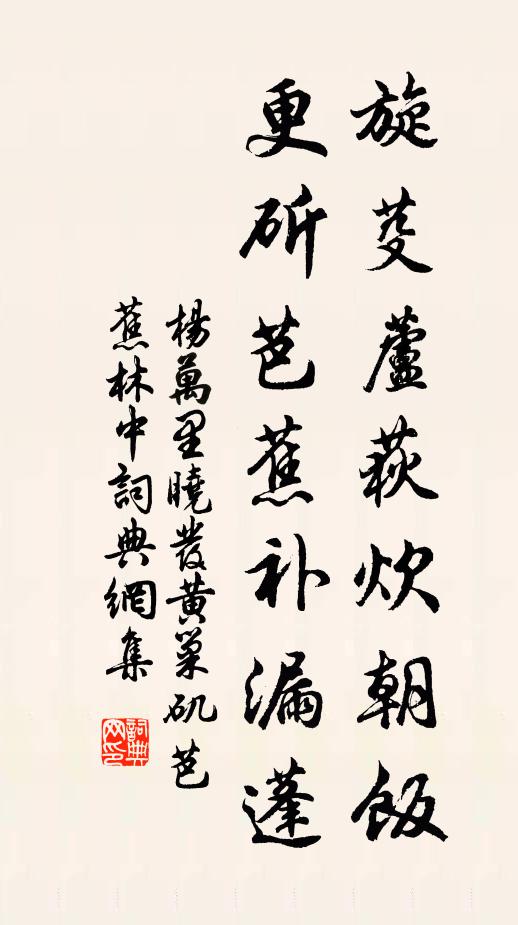 旋芟蘆荻炊朝飯
更斫芭蕉补漏蓬
楊萬里曉發黄巢矶芭
蕉林中詞典網集
詞典
网印